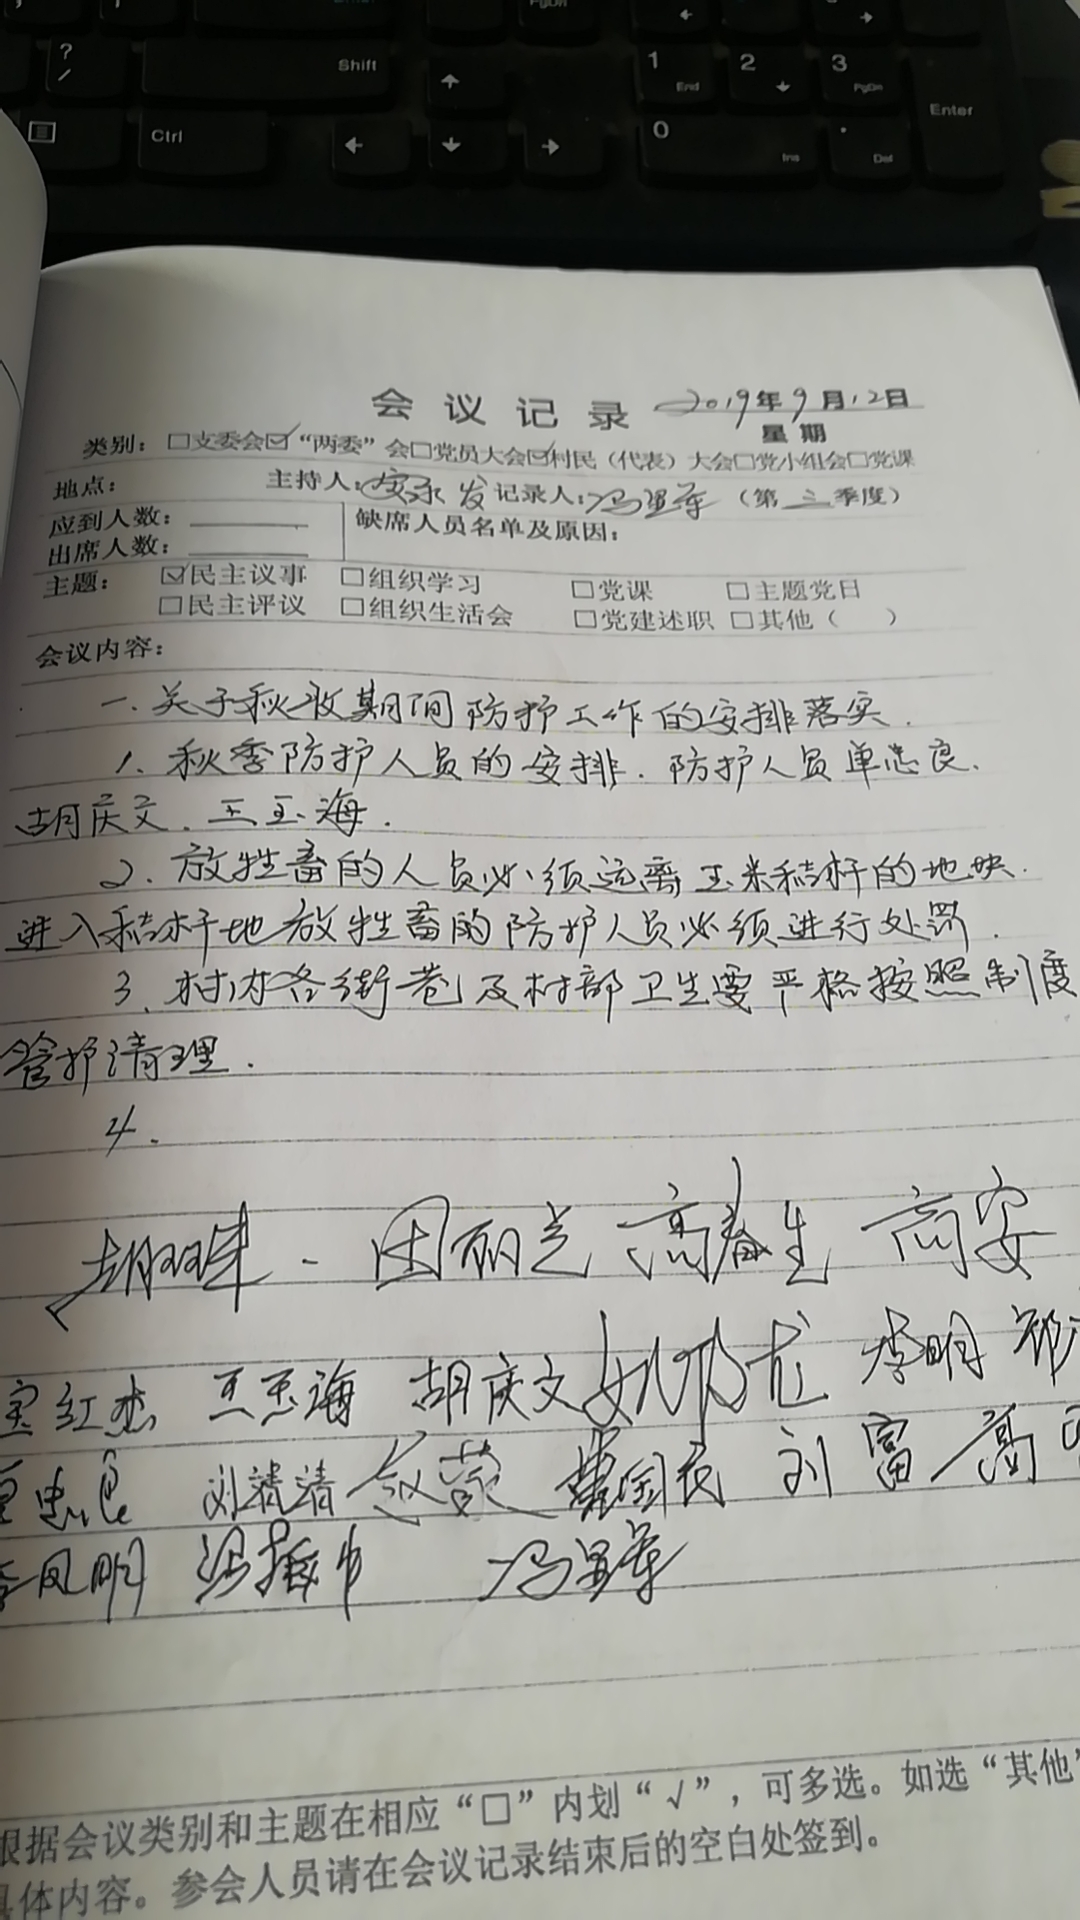 ? /
Shift
PgDn
1 End
2
3 PgDn
Enter
Ctrl
0 Ins
. Del
会议记录 2019年9月12日
星期
类别：□支委会☑“两委”会□党员大会☑村民（代表）大会□党小组会□党课
地点： 主持人： 发 记录人：冯 军（第三季度）
应到人数： 缺席人员名单及原因：
出席人数：
主题： ☑民主议事 □组织学习 □党课 □主题党日
□民主评议 □组织生活会 □党建述职 □其他（ ）
会议内容：
一. 关于秋收期间防护工作的安排落实.
1. 秋季防护人员的安排. 防护人员单忠良.
胡庆文. 王玉海.
2. 放牲畜的人员必须远离玉米秸杆的地块.
进入秸杆地放牲畜的防护人员必须进行处罚.
3. 村内各街巷及村部卫生要严格按照制度
管护清理.
4.
高春生 商安
红杰 王玉海 胡庆文 李明 祁
忠良 刘清清 国民 刘富 高
李凤明 冯 军
根据会议类别和主题在相应“□”内划“√”，可多选。如选“其他”
具体内容。参会人员请在会议记录结束后的空白处签到。